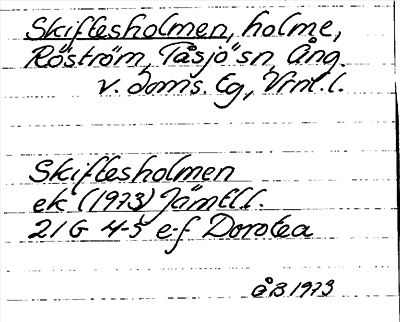 Skiftesholmen, holme,
Röström, Tåsjö sn, Ång.
v. doms. Eg, Vrnl. l.
Skiftesholmen
ek (1973) Jämtl l.
21G 4-5 e-f Dorotea
ÅB 1973